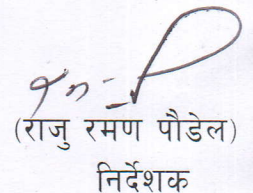 (राजु रमण पौडेल)
निर्देशक